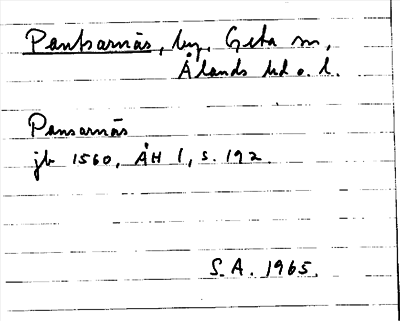 Pantsarnäs, by, Geta sn,
Ålands hd o. l.
Pansarnäs
jb 1560, ÅH 1, s. 192.
S. A. 1965.